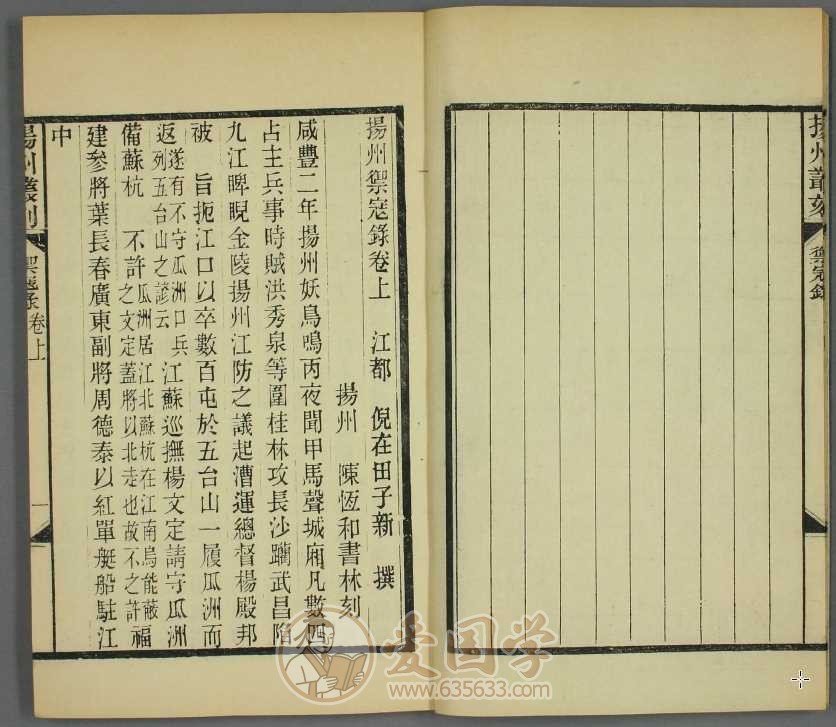 揚州叢刻
禦寇錄
揚州禦寇錄卷上　江都　倪在田子新　撰
揚州　陳恆和書林刻
咸豐二年揚州妖鳥鳴丙夜聞甲馬聲城廂凡數四
占主兵事時賊洪秀泉等圍桂林攻長沙躪武昌陷
九江睥睨金陵揚州江防之議起漕運總督楊殿邦
被　旨扼江口以卒數百屯於五台山一履瓜洲而
返遂有不守瓜洲口兵
列五台山之諺云
江蘇巡撫楊文定請守瓜洲
備蘇杭　不許瓜洲居江北蘇杭在江南烏能蔽
之文定蓋將以北走也故不之許
福
建參將葉長春廣東副將周德泰以紅單艇船駐江
中
揚州叢刻
禦寇錄卷上
一
爱国学
www.635633.com